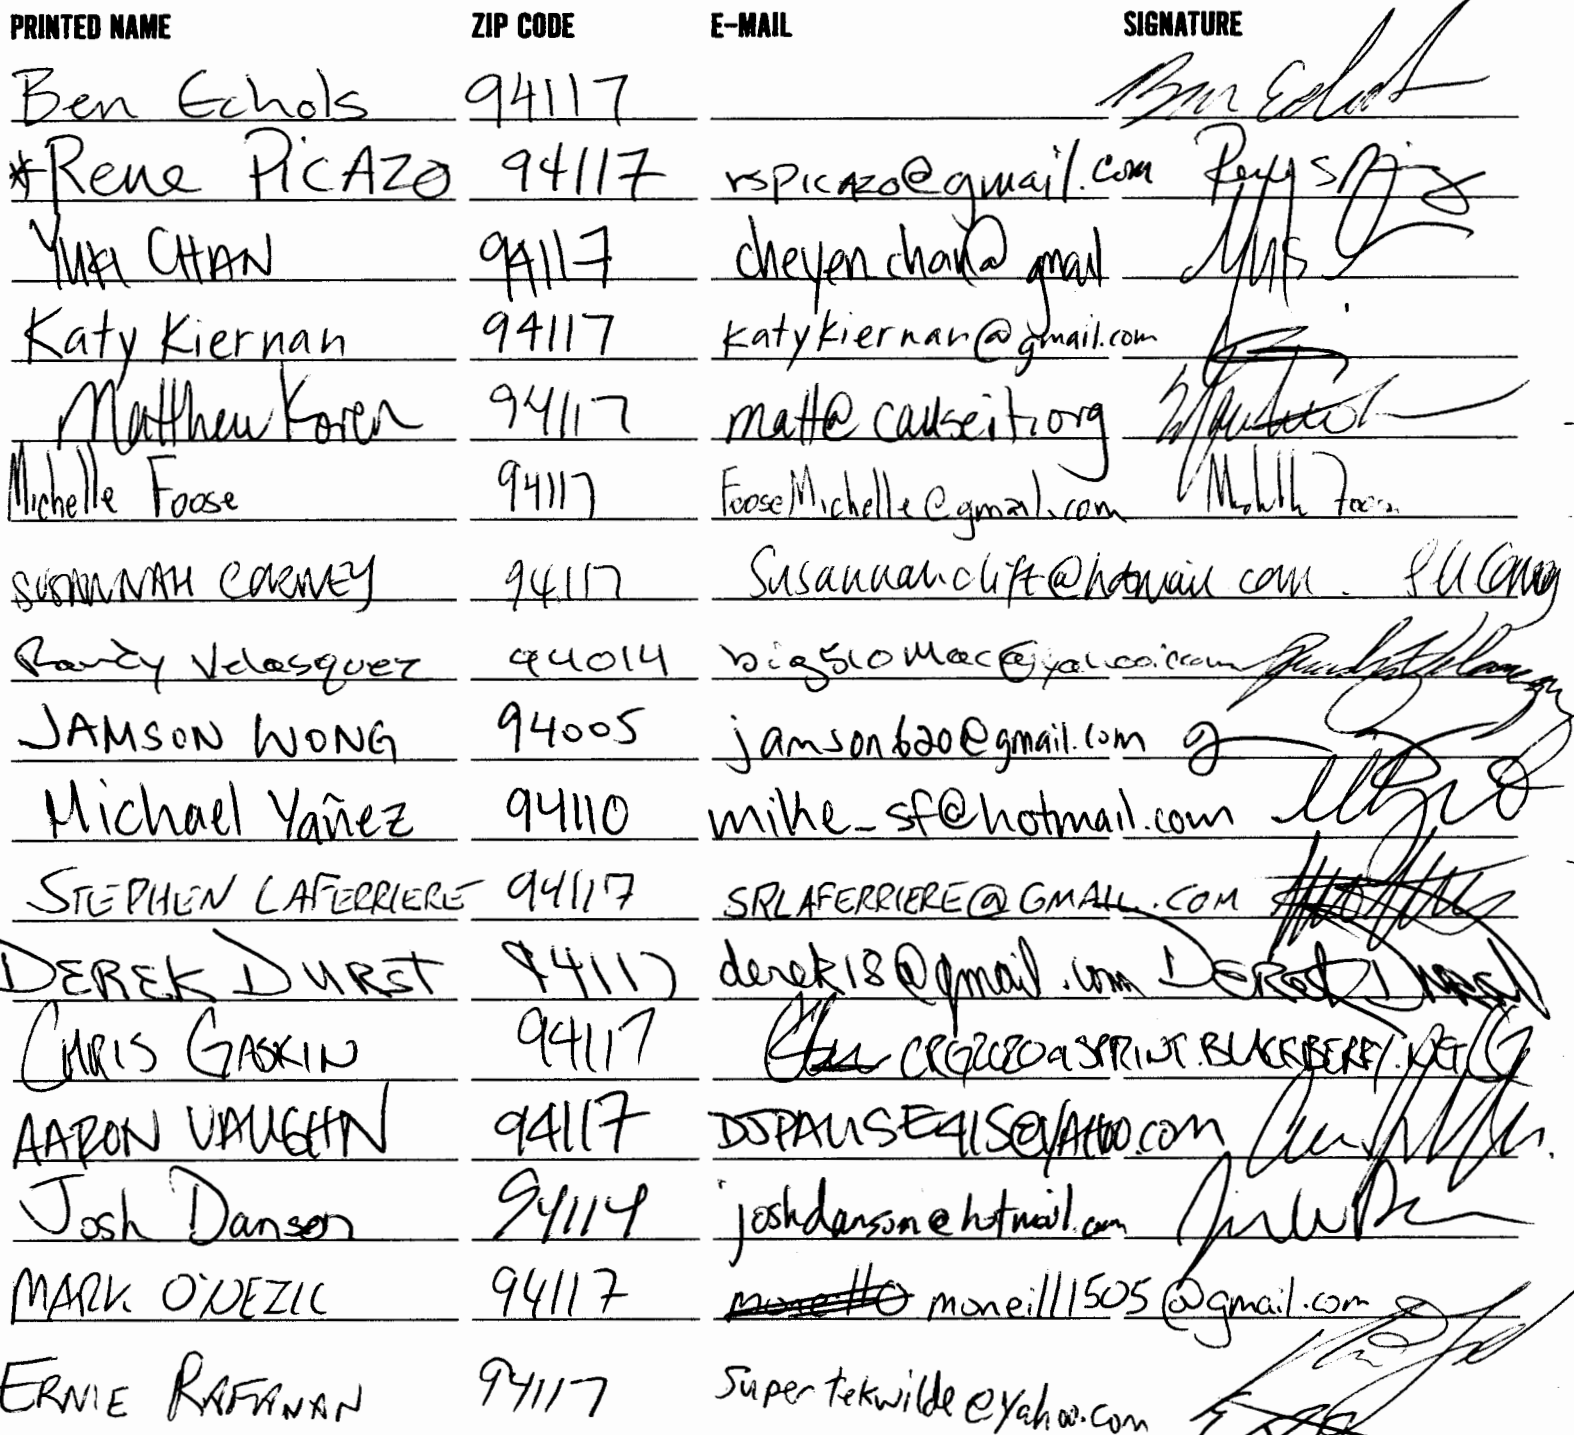 PRINTED NAME ZIP CODE E-MAIL SIGNATURE
Ben Echols 94117 Ben Echols
*Rene PICAZO 94117 rspicazo@gmail.com
YUKI CHAN 94117 cheyenchan@gmail
Katy Kiernan 94117 katykiernan@gmail.com
Matthew Koren 94117 matt@causeit.org
Michelle Foose 94117 FooseMichelle@gmail.com
SUSANNAH CARNEY 94117 Susannahclift@hotmail.com
Randy Velasquez 94014 big510mac@yahoo.com
JAMSON WONG 94005 jamson620@gmail.com
Michael Yañez 94110 mike_sf@hotmail.com
STEPHEN LAFERRIERE 94117 SRLAFERRIERE@GMAIL.COM
DEREK DURST 94117 derek18@gmail.com DEREK DURST
CHRIS GASKIN 94117 SPRINT.BLACKBERRY.NET
AARON VAUGHN 94117 DJPAUSE415@YAHOO.COM
Josh Danson 94114 joshdanson@hotmail.com
MARK 94117 moneill1505@gmail.com
ERNIE RAFANAN 94117 supertekwilde@yahoo.com